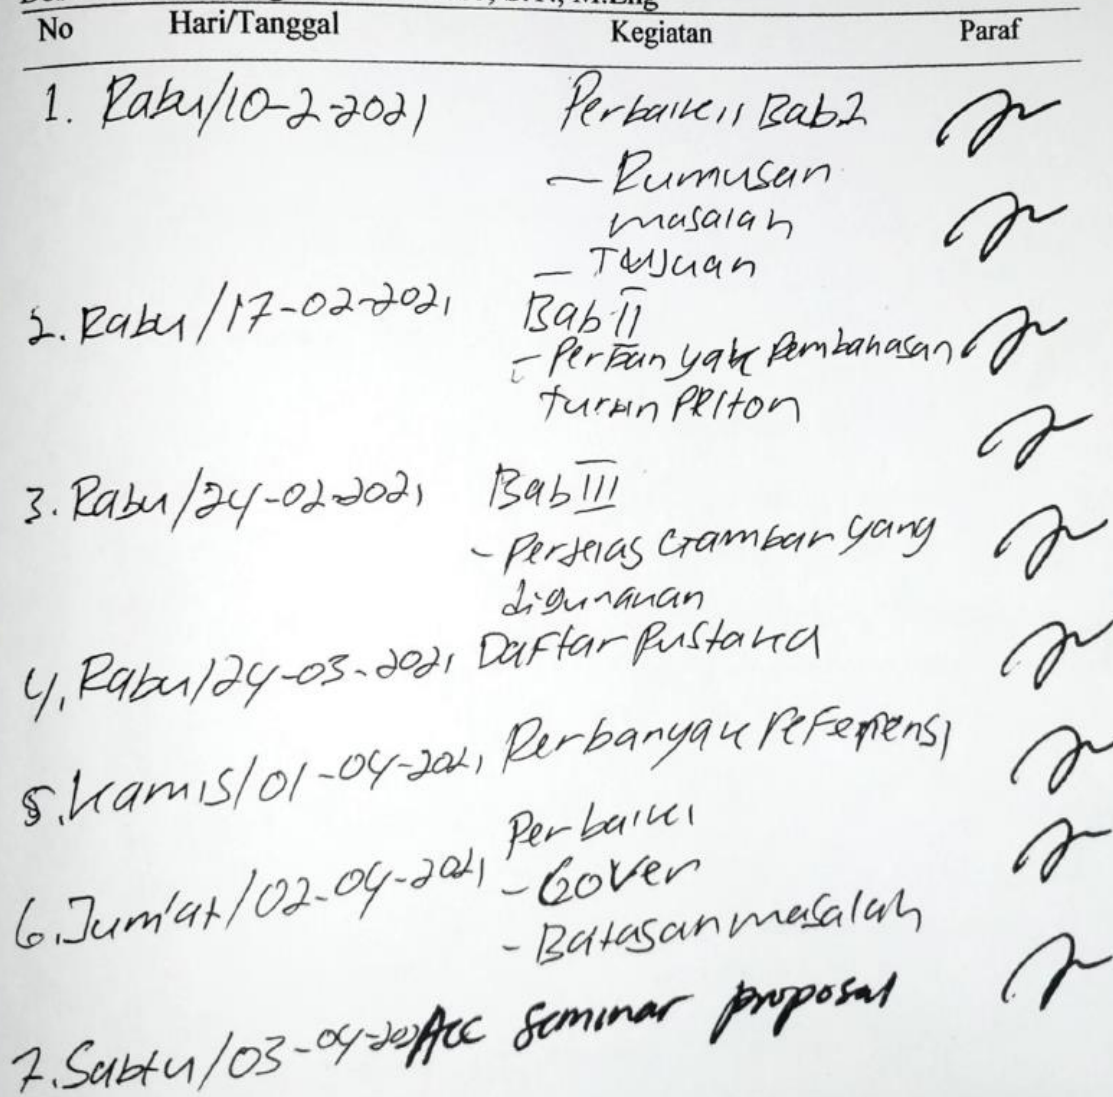 M.Eng
No Hari/Tanggal Kegiatan Paraf
1. Rabu/10-2-2021 Perbaiki Bab 2
- Rumusan
masalah
- Tujuan
2. Rabu/17-02-2021 Bab II
- Perbanyak Pembahasan
turbin Pelton
3. Rabu/24-02-2021 Bab III
- Perjelas Gambar yang
digunakan
4. Rabu/24-03-2021 Daftar Pustaka
5. Kamis/01-04-2021 Perbanyak referensi
6. Jum'at/02-04-2021 Perbaiki
- Cover
- Batasan masalah
7. Sabtu/03-04-2021 Acc seminar proposal